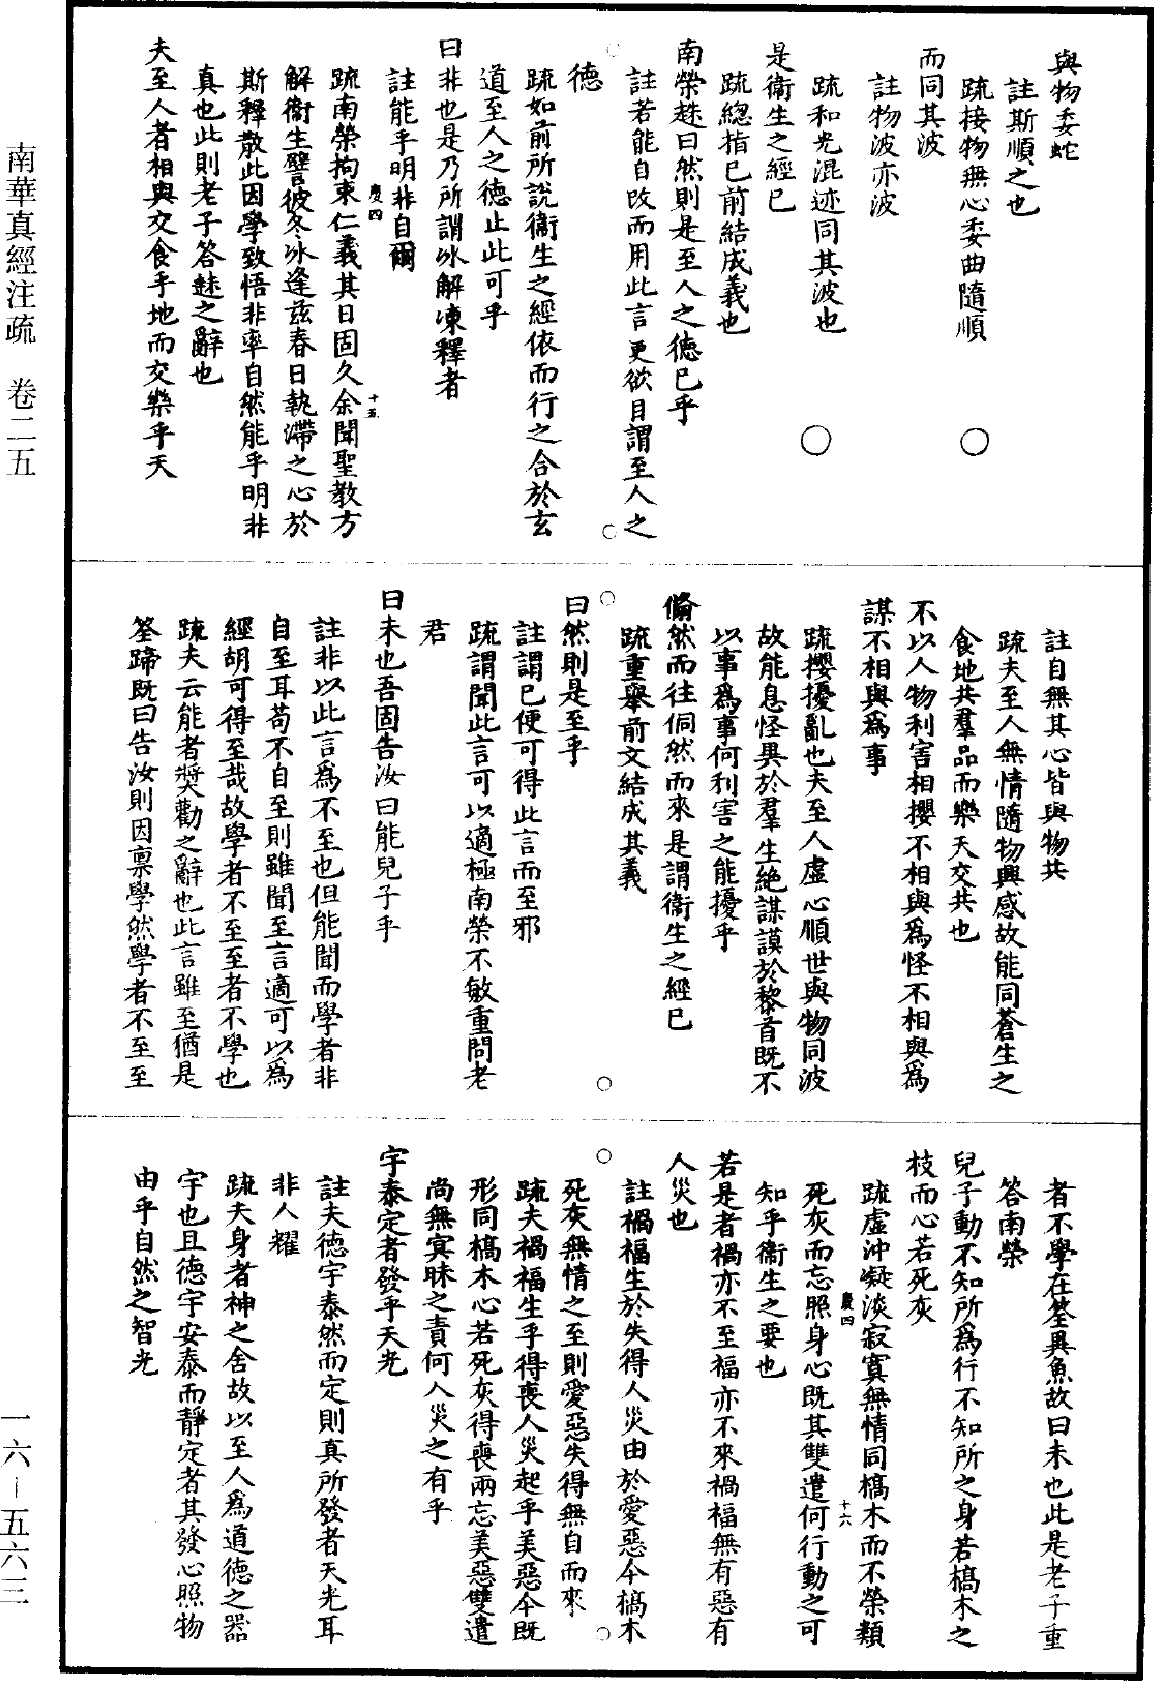 與物委蛇
註斯順之也
疏接物無心委曲隨順
而同其波
註物波亦波
疏和光混迹同其波也
是衞生之經已
疏總指已前結成義也
南榮趎曰然則是至人之德已乎
註若能自改而用此言更欲目謂至人之
德
疏如前所說衞生之經依而行之合於玄
道至人之德止此可乎
曰非也是乃所謂冰解凍釋者
註能乎明非自爾
疏南榮拘束仁義其日固久余聞聖教方
解衞生譬彼冬冰逢茲春日執滯之心於
斯釋散此因學致悟非率自然能乎明非
真也此則老子答趎之辭也
夫至人者相與交食乎地而交樂乎天
慶四
十五
註自無其心皆與物共
疏夫至人無情隨物興感故能同蒼生之
食地共羣品而樂天交共也
不以人物利害相攖不相與爲怪不相與爲
謀不相與爲事
疏攖擾亂也夫至人虛心順世與物同波
故能息怪異於羣生絶謀謨於黎首既不
以事爲事何利害之能擾乎
翛然而往侗然而來是謂衞生之經已
疏重舉前文結成其義
曰然則是至乎
註謂已便可得此言而至邪
疏謂聞此言可以適極南榮不敏重問老
君
曰未也吾固告汝曰能兒子乎
註非以此言爲不至也但能聞而學者非
自至耳苟不自至則雖聞至言適可以爲
經胡可得至哉故學者不至至者不學也
疏夫云能者獎勸之辭也此言雖至猶是
筌蹄既曰告汝則因禀學然學者不至至
者不學在筌異魚故曰未也此是老子重
答南榮
兒子動不知所爲行不知所之身若槁木之
枝而心若死灰
疏虛沖凝淡寂寞無情同槁木而不榮類
死灰而忘照身心既其雙遣何行動之可
知乎衞生之要也
若是者禍亦不至福亦不來禍福無有惡有
人災也
註禍福生於失得人災由於愛惡今槁木
死灰無情之至則愛惡失得無自而來
疏夫禍福生乎得喪人災起乎美惡今既
形同槁木心若死灰得喪兩忘美惡雙遣
尚無冥昧之責何人災之有乎
宇泰定者發乎天光
註夫德宇泰然而定則真所發者天光耳
非人耀
疏夫身者神之舍故以至人爲道德之器
宇也且德宇安泰而靜定者其發心照物
由乎自然之智光
慶四
十六
南華真經注疏 卷二五
一六—五六三